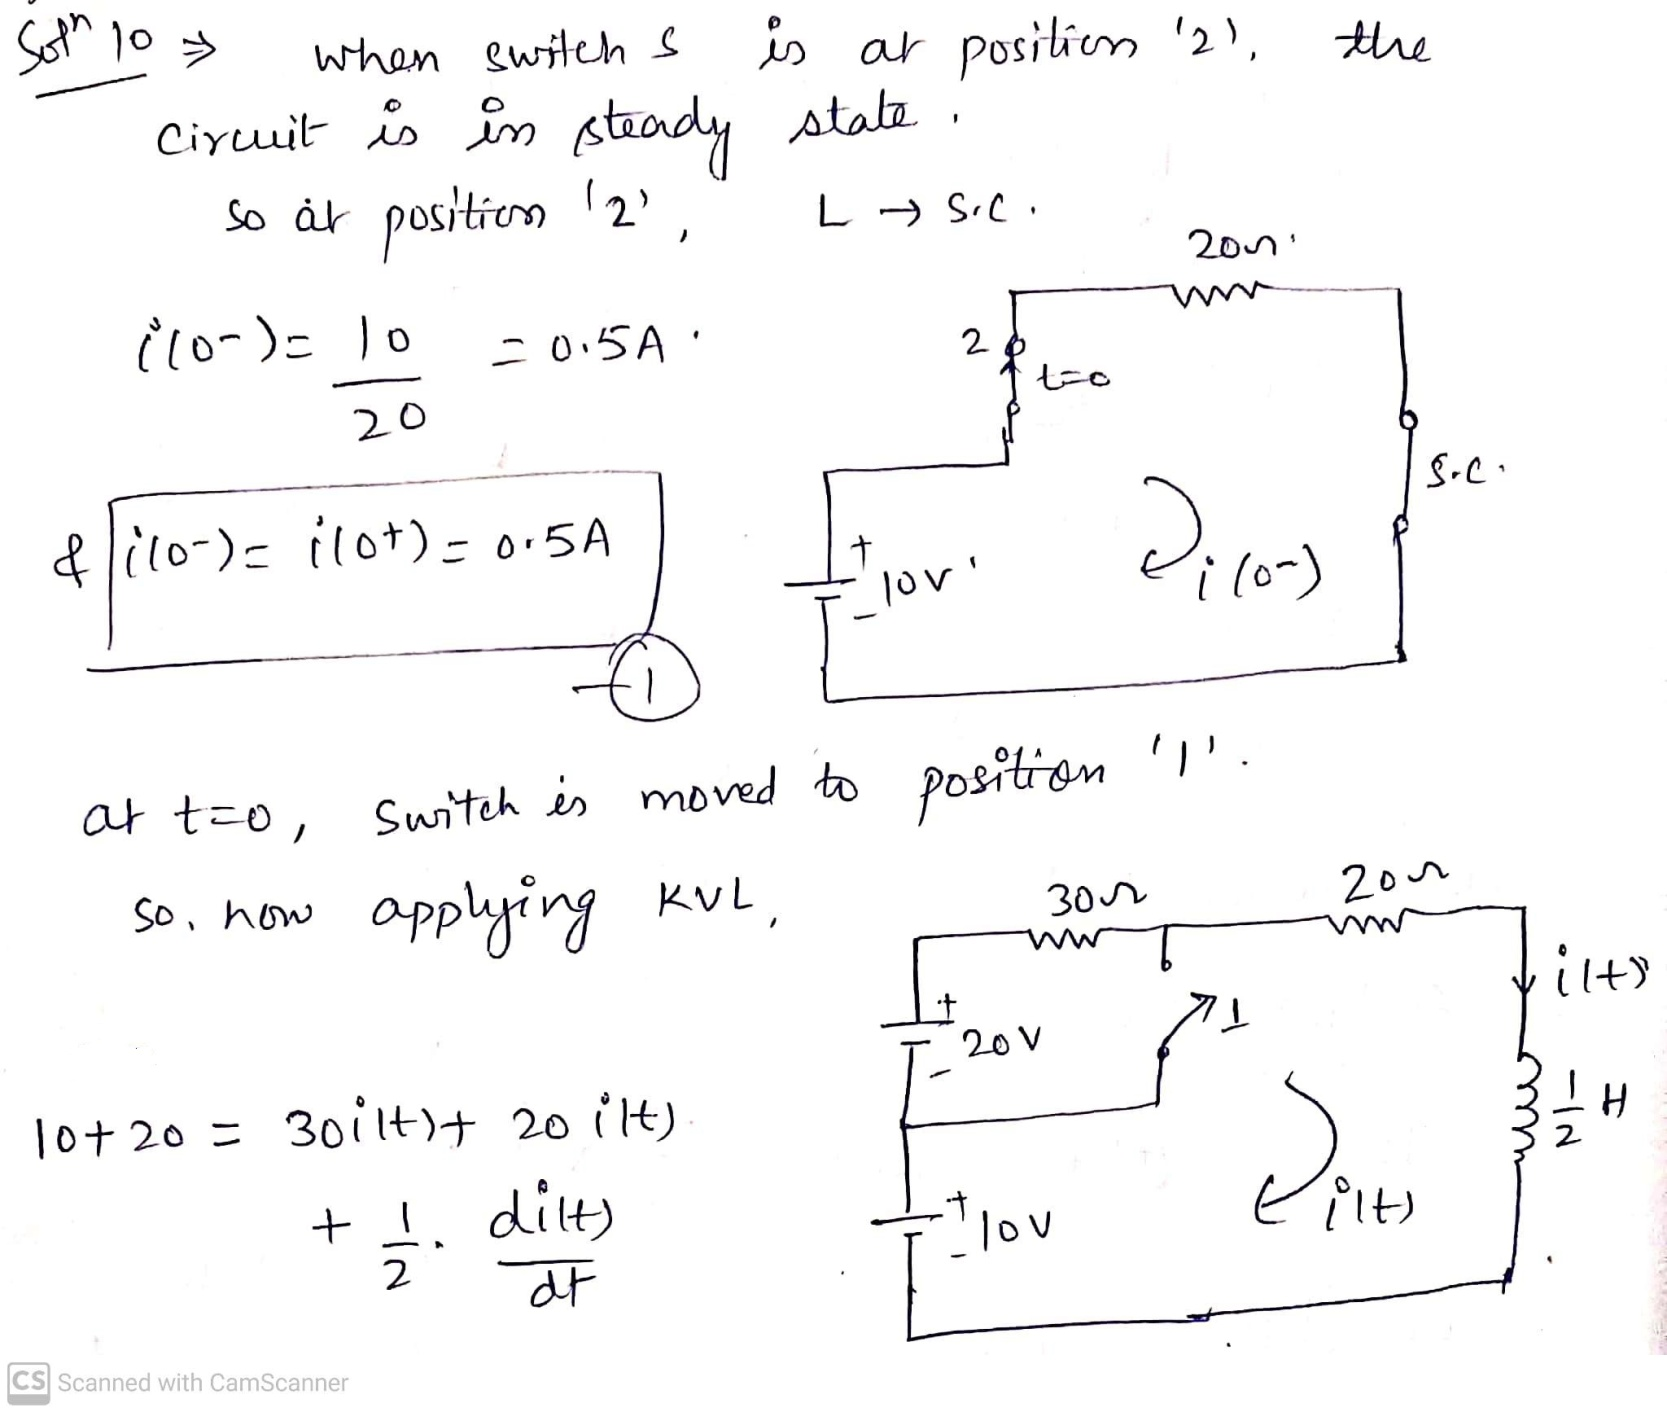 Solⁿ 10 ⇒ when switch s is at position '2', the
circuit is in steady state.
so at position '2', L → S.C.
20Ω
i(0-) = 10/20 = 0.5A.
2
t=0
S.C.
& i(0-) = i(0+) = 0.5A
+
10V
-
i(0-)
1
at t=0, switch is moved to position '1'.
so, now applying KVL,
30Ω
20Ω
i(t)
+
20V
-
1
1/2 H
10+20 = 30i(t) + 20i(t)
+ 1/2 . di(t)/dt
+
10V
-
i(t)
CS Scanned with CamScanner